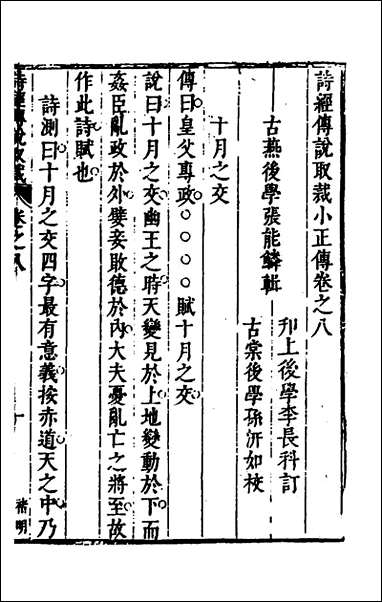 詩經傳說取裁小正傳卷之八
古燕後學張能鱗輯
邗上後學李長科訂
古棠後學孫汧如校
十月之交
傳曰皇父專政○○○○賦十月之交
說曰十月之交幽王之時天變見於上地變動於下而
姦臣亂政於外嬖妾敗德於內大夫憂亂亡之將至故
作此詩賦也
詩測曰十月之交四字最有意義按赤道天之中乃
詩經傳說取裁
卷之八
一
禇明